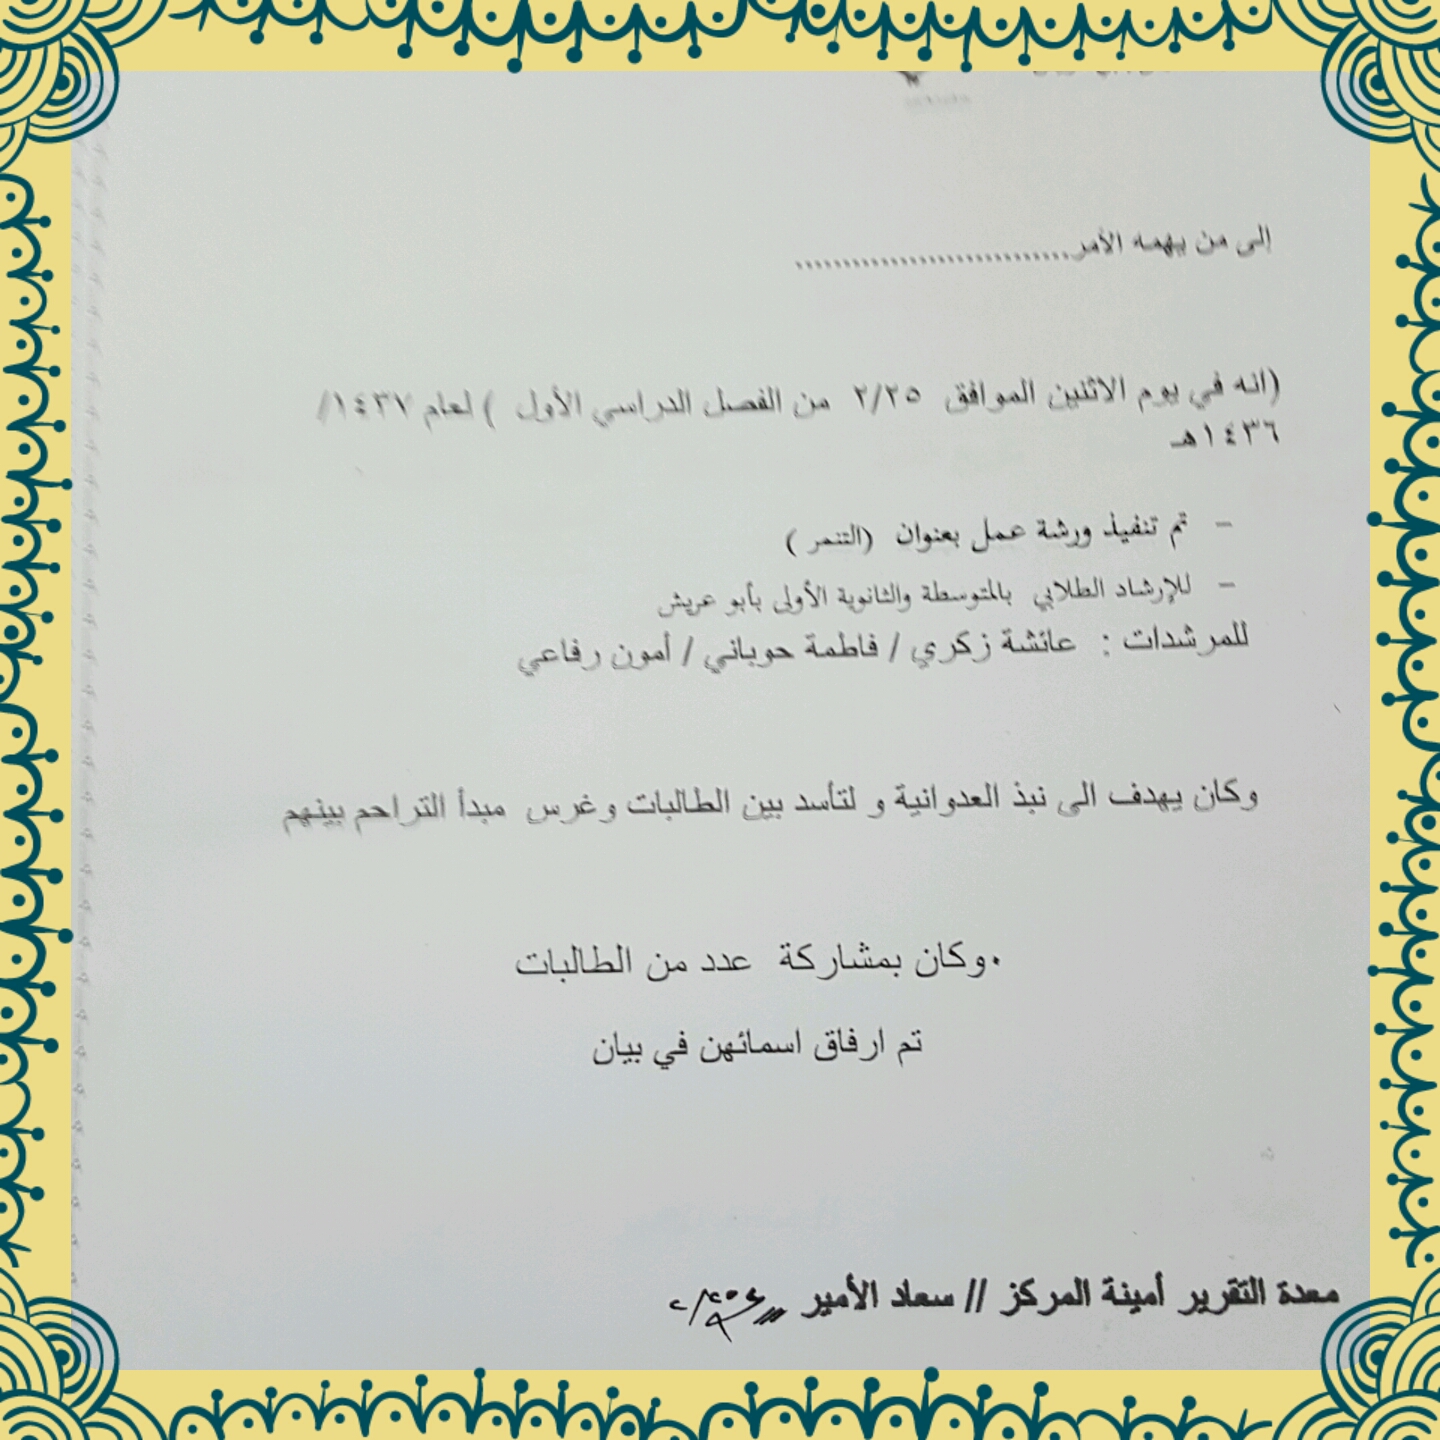 إلى من يهمه الأمر.............................
(انه في يوم الاثنين الموافق ٢/٢٥ من الفصل الدراسي الأول ) لعام ١٤٣٧/
١٤٣٦هـ
- تم تنفيذ ورشة عمل بعنوان (التنمر )
- للإرشاد الطلابي بالمتوسطة والثانوية الأولى بأبو عريش
للمرشدات : عائشة زكري / فاطمة حوباني / أمون رفاعي
وكان يهدف الى نبذ العدوانية و لتأسد بين الطالبات وغرس مبدأ التراحم بينهم
.وكان بمشاركة عدد من الطالبات
تم ارفاق اسمائهن في بيان
معدة التقرير أمينة المركز // سعاد الأمير